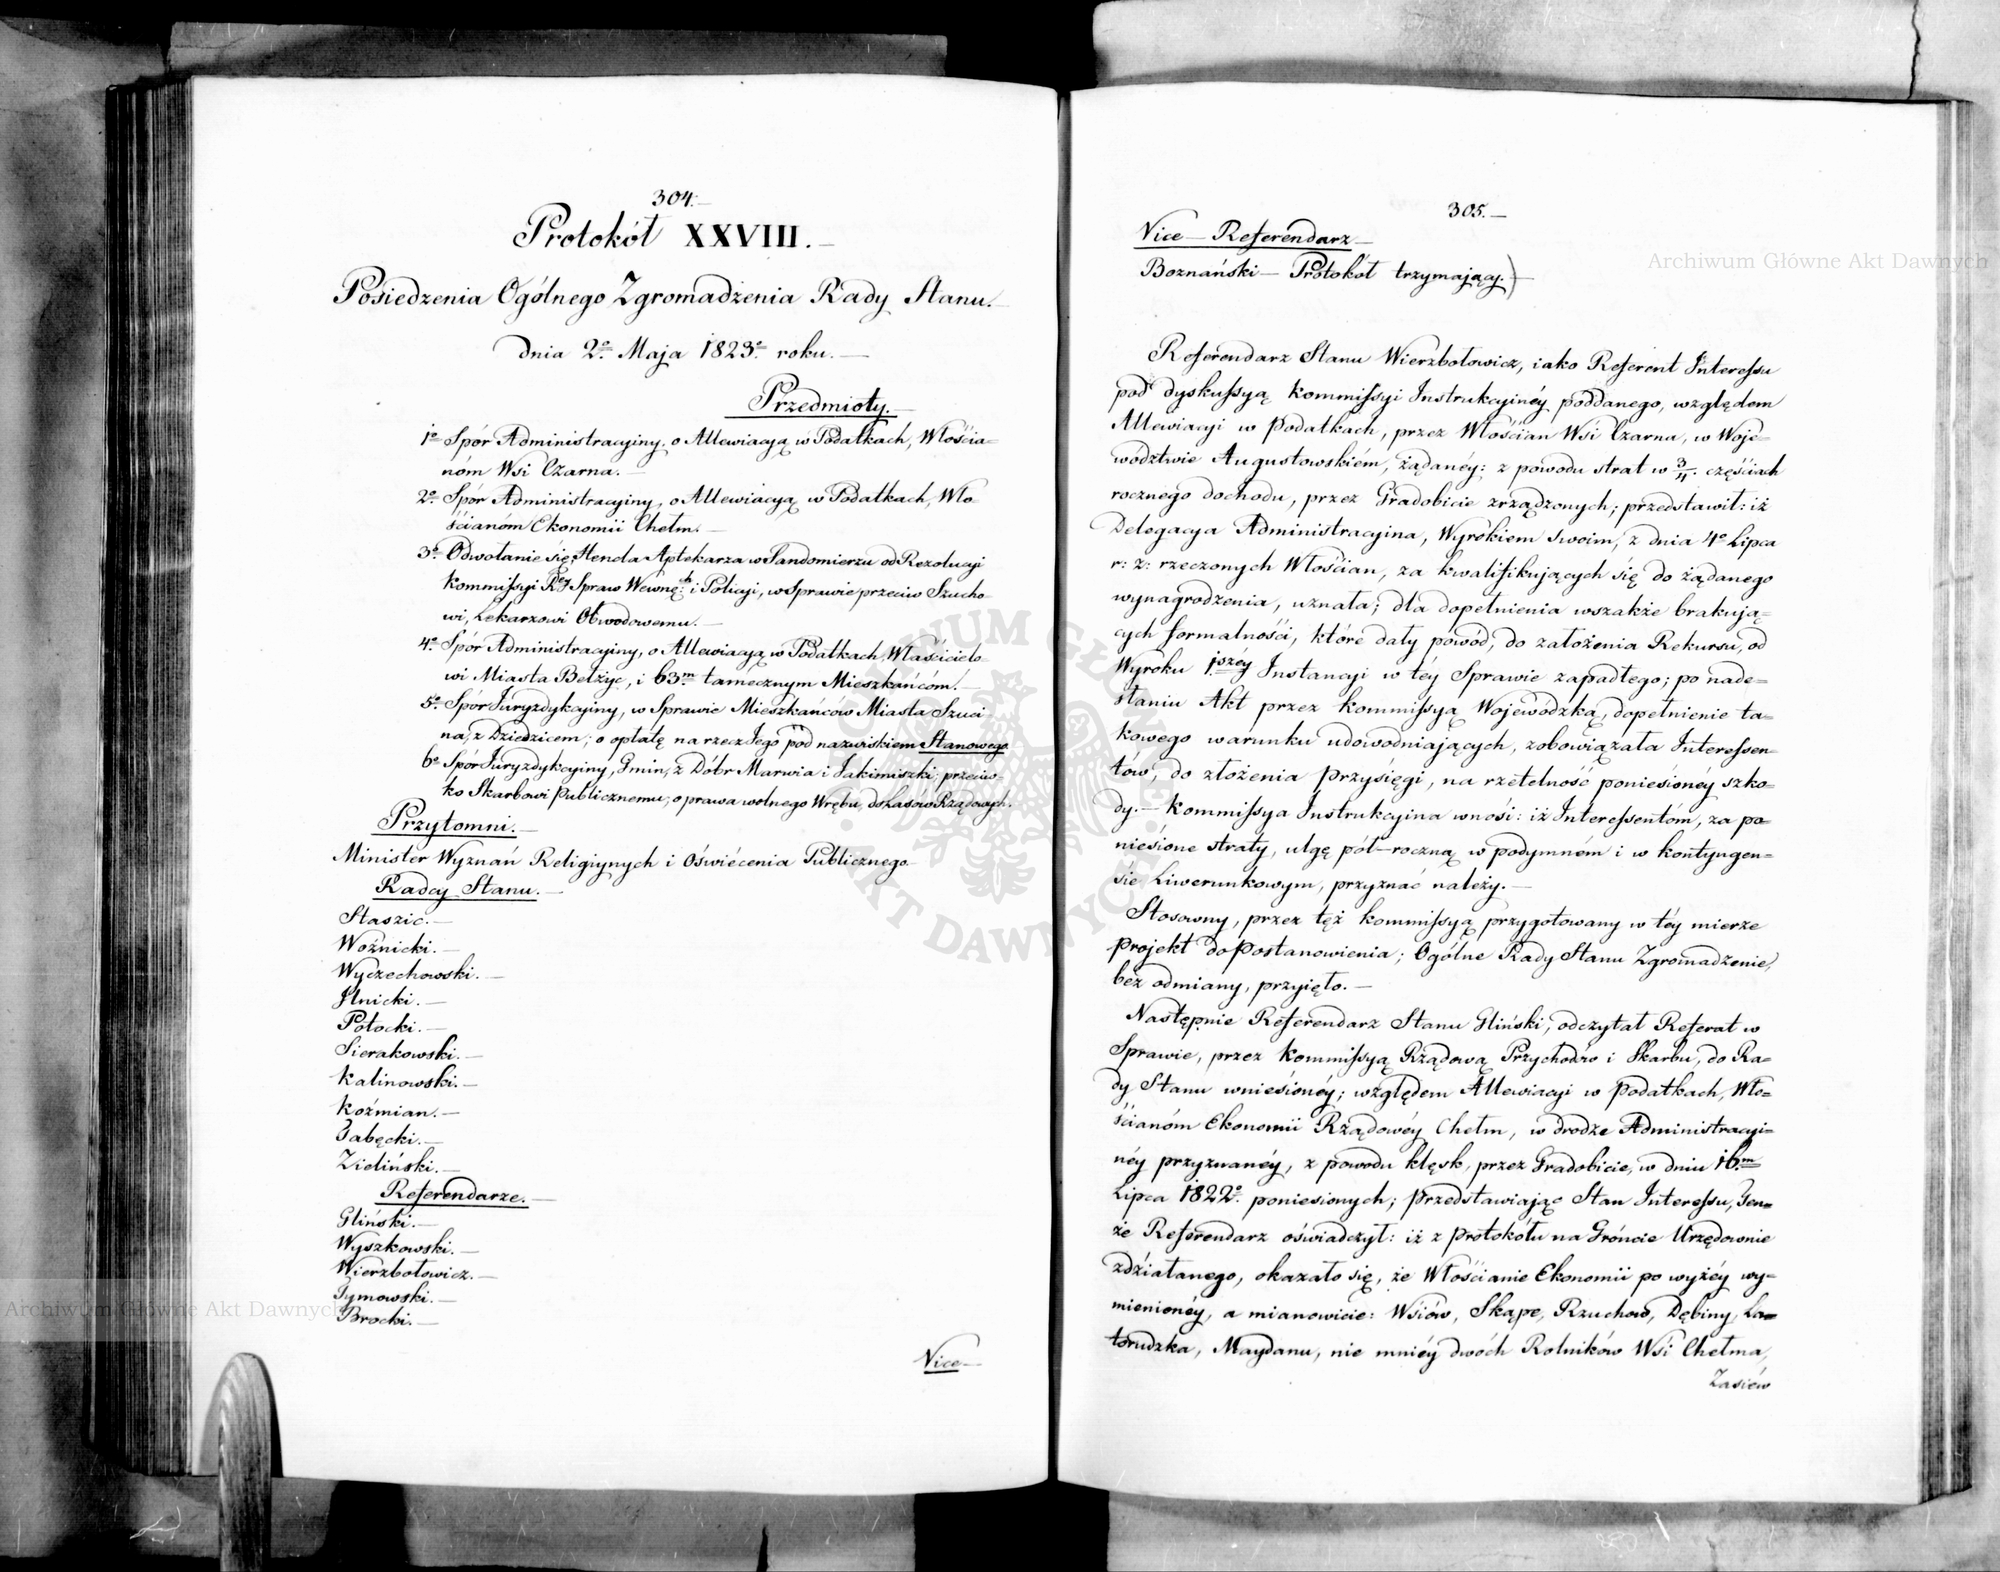 304.
Protokół XXVIII.
Posiedzenia Ogólnego Zgromadzenia Rady Stanu.
dnia 2º Maja 1823º roku.
Przedmioty.
1º Spór Administracyiny, o Allewiacyą w Podatkach, Włościa=
nóm Wsi Czarna.
2º Spór Administracyiny, o Allewiacyą w Podatkach, Wło
ścianóm Ekonomii Chełm.
3º Odwołanie się Hencla Aptekarza w Sandomierzu od Rezolucyi
Kommissyi R. Spraw Wewnę: i Policyi, w Sprawie przeciw Szucho=
wi, Lekarzowi Obwodowemu.
4º Spór Administracyiny, o Allewiacyą w Podatkach, Właścicielo=
wi Miasta Bełżyc, i 63m tamecznym Mieszkańcóm.
5º Spór Juryzdykcyiny, w Sprawie Mieszkańców Miasta Szuci
na, z Dziedzicem; o opłatę na rzecz Jego pod nazwiskiem Stanowego
6º Spór Juryzdykcyiny, Gmin, z Dóbr Marwia i Jakimiszki; przeciw=
ko Skarbowi Publicznemu; o prawa wolnego Wrębu, do Lasów Rządowych.
Przytomni.
Minister Wyznań Religiynych i Oświécenia Publicznego
Radcy Stanu.
Staszic.
Woźnicki.
Wyczechowski.
Ilnicki.
Potocki.
Sierakowski.
Kalinowski.
Koźmian.
Zabęcki.
Zieliński.
Referendarze.
Gliński.
Wyszkowski.
Wierzbołowicz.
Tymowski.
Brocki.
Vice
305.
Vice-Referendarz
Boznański - Protokół trzymający.)
Referendarz Stanu Wierzbołowicz, iako Referent Interessu
pod dyskussyą Kommissyi Instrukcyinéy poddanego, względem
Allewiacyi w Podatkach, przez Włościan Wsi Czarna, w Woje=
wództwie Augustowskiém, żądanéy; z powodu strat w 3/11 częściach
rocznego dochodu, przez Gradobicie zrządzonych; przedstawił: iż
Delegacya Administracyina, Wyrokiem swoim, z dnia 4º Lipca
r: z: rzeczonych Włościan, za kwalifikujących się do żądanego
wynagrodzenia, uznała; dla dopełnienia wszakże brakują=
cych formalności, które dały powód, do założenia Rekursu, od
Wyroku 1széy Instancyi w téy Sprawie zapadłego; po nade=
słaniu Akt przez Kommissyą Wojewódzką, dopełnienie ta=
kowego warunku udowodniających, zobowiązała Interessen=
tów, do złożenia przysięgi, na rzetelność poniesionéy szko=
dy.- Kommissya Instrukcyina wnosi: iż Interessentóm, za po=
niesione straty, ulgę pół-roczną w podymném i w kontyngen=
sie Liwerunkowym, przyznać należy.
Stosowny, przez tęż Kommissyą przygotowany w téy mierze
Projekt do Postanowienia; Ogólne Rady Stanu Zgromadzenie,
bez odmiany, przyięło.
Następnie Referendarz Stanu Gliński, odczytał Referat w
Sprawie, przez Kommissyą Rządową Przychodów i Skarbu, do Ra=
dy Stanu wniesionéy; względem Allewiacyi w Podatkach, Wło=
ścianóm Ekonomii Rządowéy Chełm, w drodze Administracyi=
néy przyznanéy, z powodu klęsk, przez Gradobicie, w dniu 16m
Lipca 1822º. poniesionych; Przedstawiając Stan Interessu, Ten=
że Referendarz oświadczył: iż z Protokółu na Gróncie Urzędownie
zdziałanego, okazało się, że Włościanie Ekonomii po wyżéy wy=
mienionéy, a mianowicie: Wsiów, Skąpe, Rzuchow, Dębiny, La=
torudzka, Maydanu, nie mniéy dwóch Rolników Wsi Chełma,
Zasiew
Archiwum Główne Akt Dawnych
Archiwum Główne Akt Dawnych